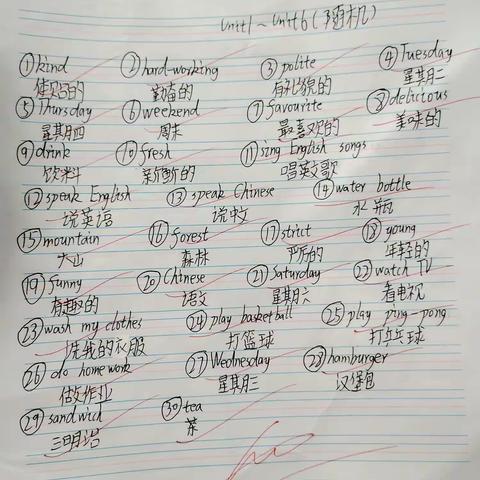 Unit1~Unit6(随机)
①kind ②hard-working ③polite ④Tuesday
勤奋的 有礼貌的 星期二
⑤Thursday ⑥weekend ⑦favourite ⑧delicious
星期四 周末 最喜欢的 美味的
⑨drink ⑩fresh ⑪sing English songs
饮料 新鲜的 唱英文歌
⑫speak English ⑬speak Chinese ⑭water bottle
说英语 说中文 水瓶
⑮mountain ⑯forest ⑰strict ⑱young
大山 森林 严厉的 年轻的
⑲funny ⑳Chinese ㉑Saturday ㉒watch TV
有趣的 语文 星期六 看电视
㉓wash my clothes ㉔play basketball ㉕play ping-pong
洗我的衣服 打篮球 打乒乓球
㉖do homework ㉗Wednesday ㉘hamburger
做作业 星期三 汉堡包
㉙sandwich ㉚tea
三明治 茶